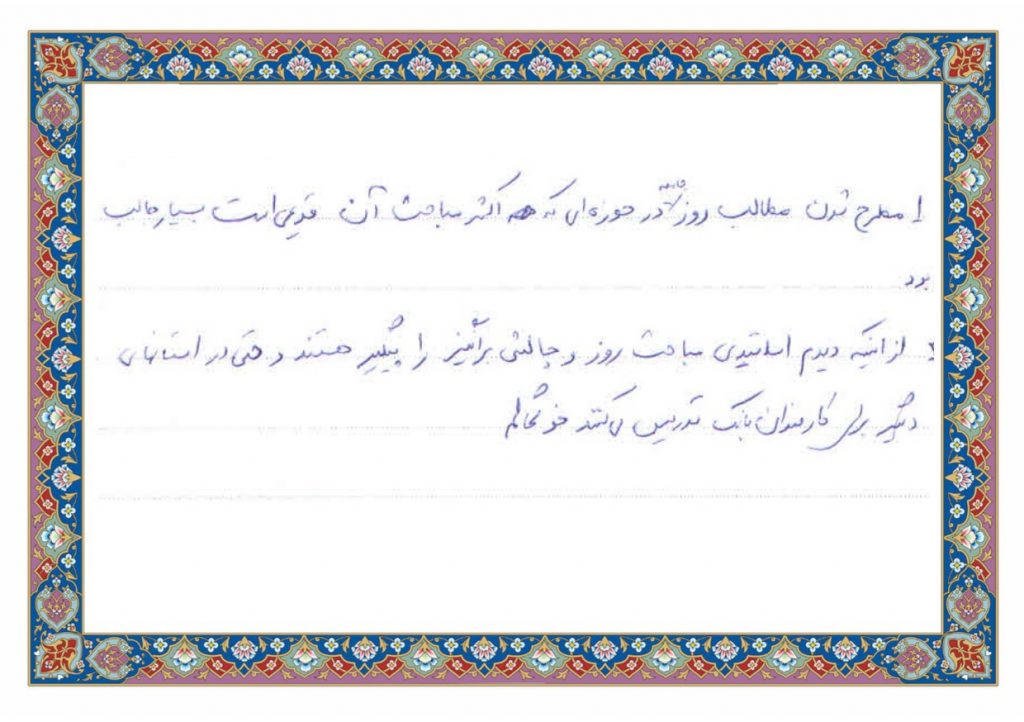 ۱ مطرح شدن مطالب روز جامعه در حوزه ای که اکثر مباحث آن قدیمی است بسیار جالب
بود
۲ از اینکه دیدم اساتیدی مباحث روز و چالش برانگیز را پیگیر هستند و حتی در استانهای
دیگر برای کارمندان بانک تدریس می کنند خوشحالم